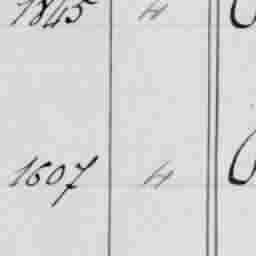 1845 4
1607 4